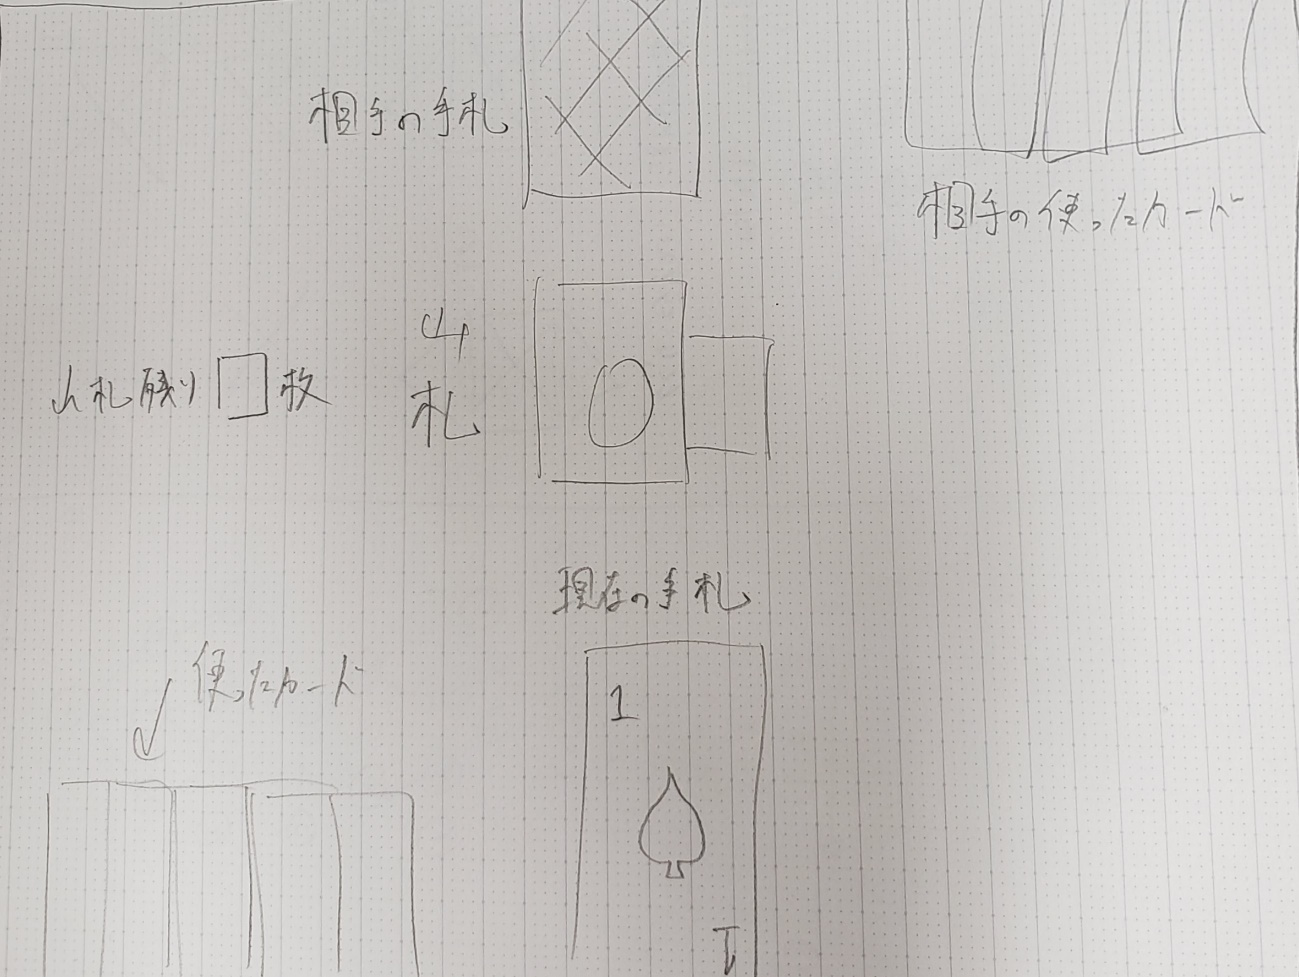 相手の手札
相手の使ったカード
山札
山札残り□枚
現在の手札
使ったカード
1
1